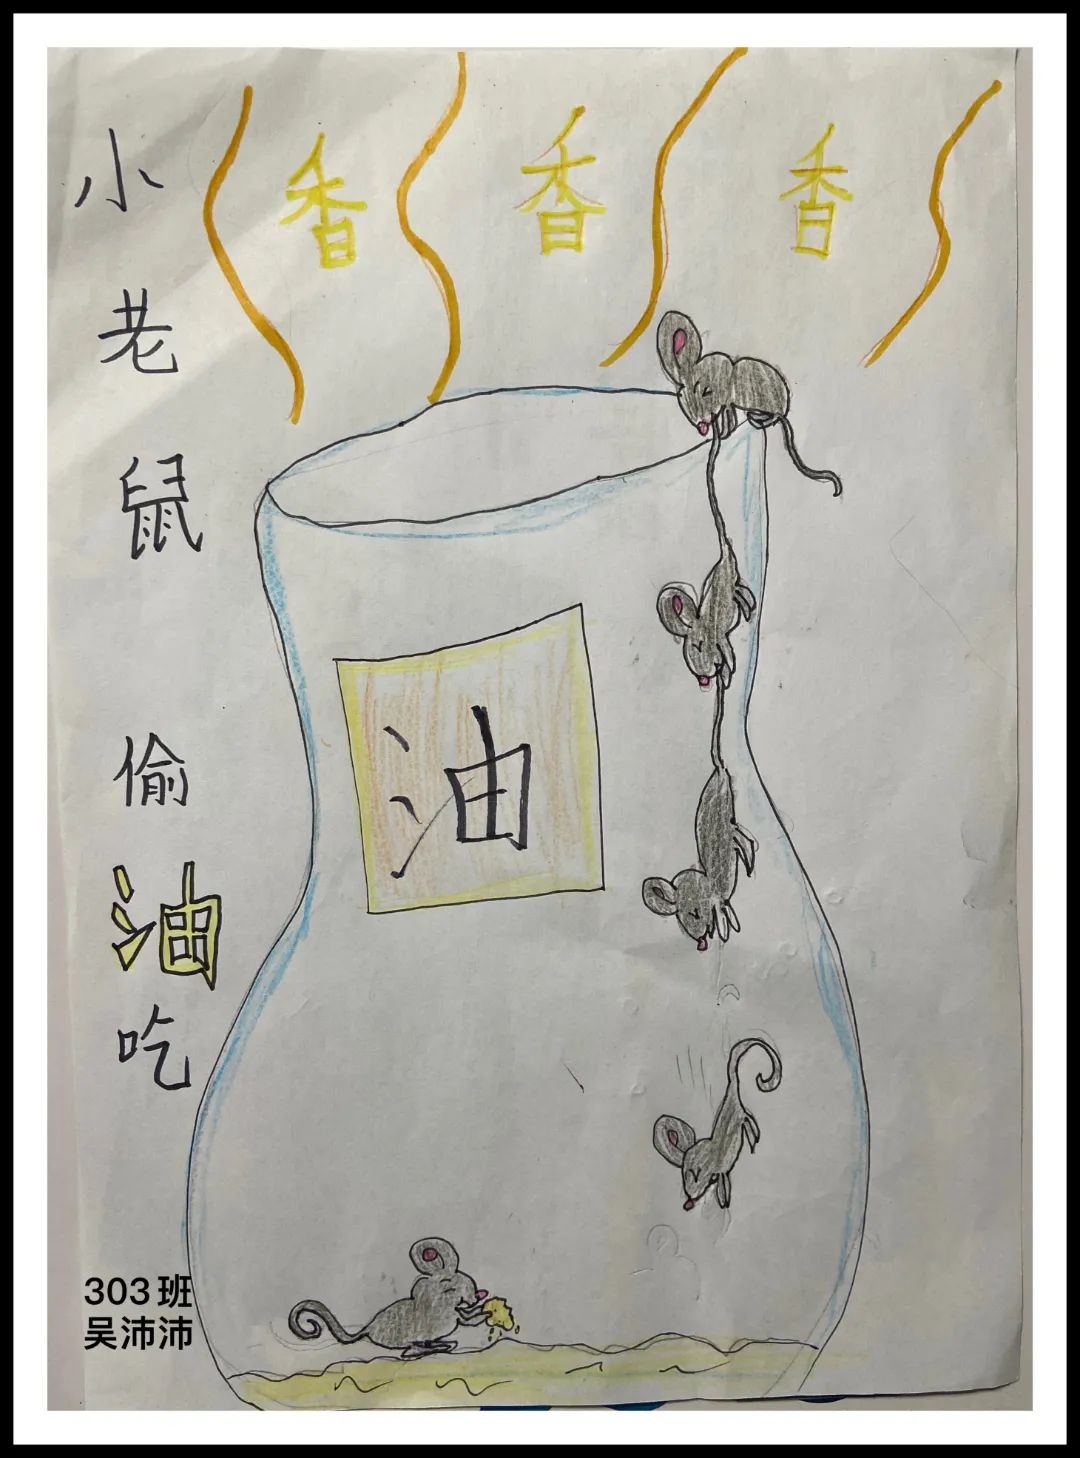 香 香 香
小老鼠
偷油吃
油
303班
吴沛沛